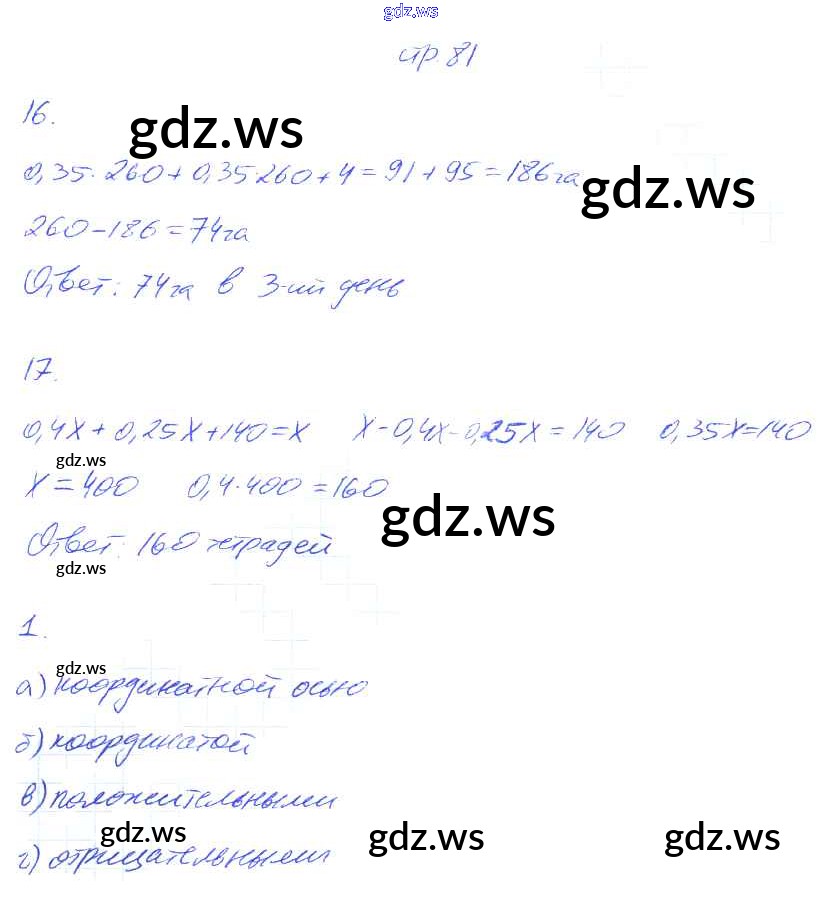 gdz.ws
стр. 81
16.
gdz.ws
0,35·260+0,35 260+4=91+95=186га
gdz.ws
260-186=74га
Ответ: 74га в 3-ий день
17.
0,4x+0,25x+140=x x-0,4x-0,25x=140 0,35x=140
gdz.ws
x=400 0,4·400=160
gdz.ws
Ответ: 160 тетрадей
gdz.ws
1.
gdz.ws
а) координатной осью
б) координатой
в) положительными
gdz.ws gdz.ws gdz.ws
г) отрицательными